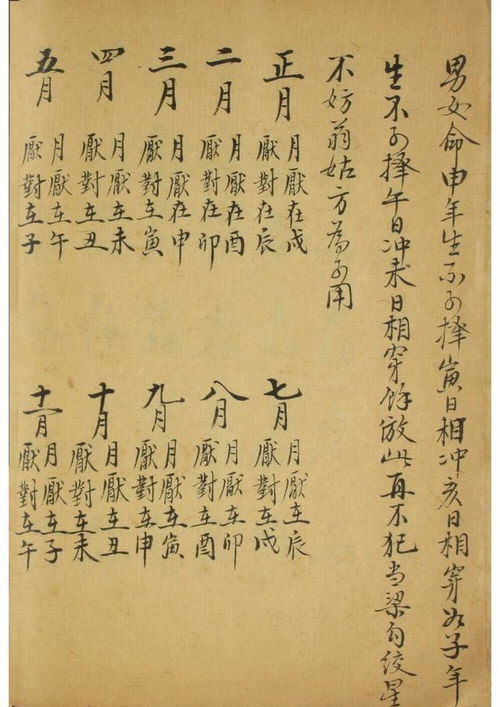 男女命申年生不可擇寅日相冲亥日相穿如子年
生不可擇午日冲未日相穿餘放此再不犯當梁勾絞星
不妨翁姑方為可用
正月 月厭在戌 厭對在辰
二月 月厭在酉 厭對在卯
三月 月厭在申 厭對在寅
四月 月厭在未 厭對在丑
五月 月厭在午 厭對在子
七月 月厭在辰 厭對在戌
八月 月厭在卯 厭對在酉
九月 月厭在寅 厭對在申
十月 月厭在丑 厭對在未
十一月 月厭在子 厭對在午